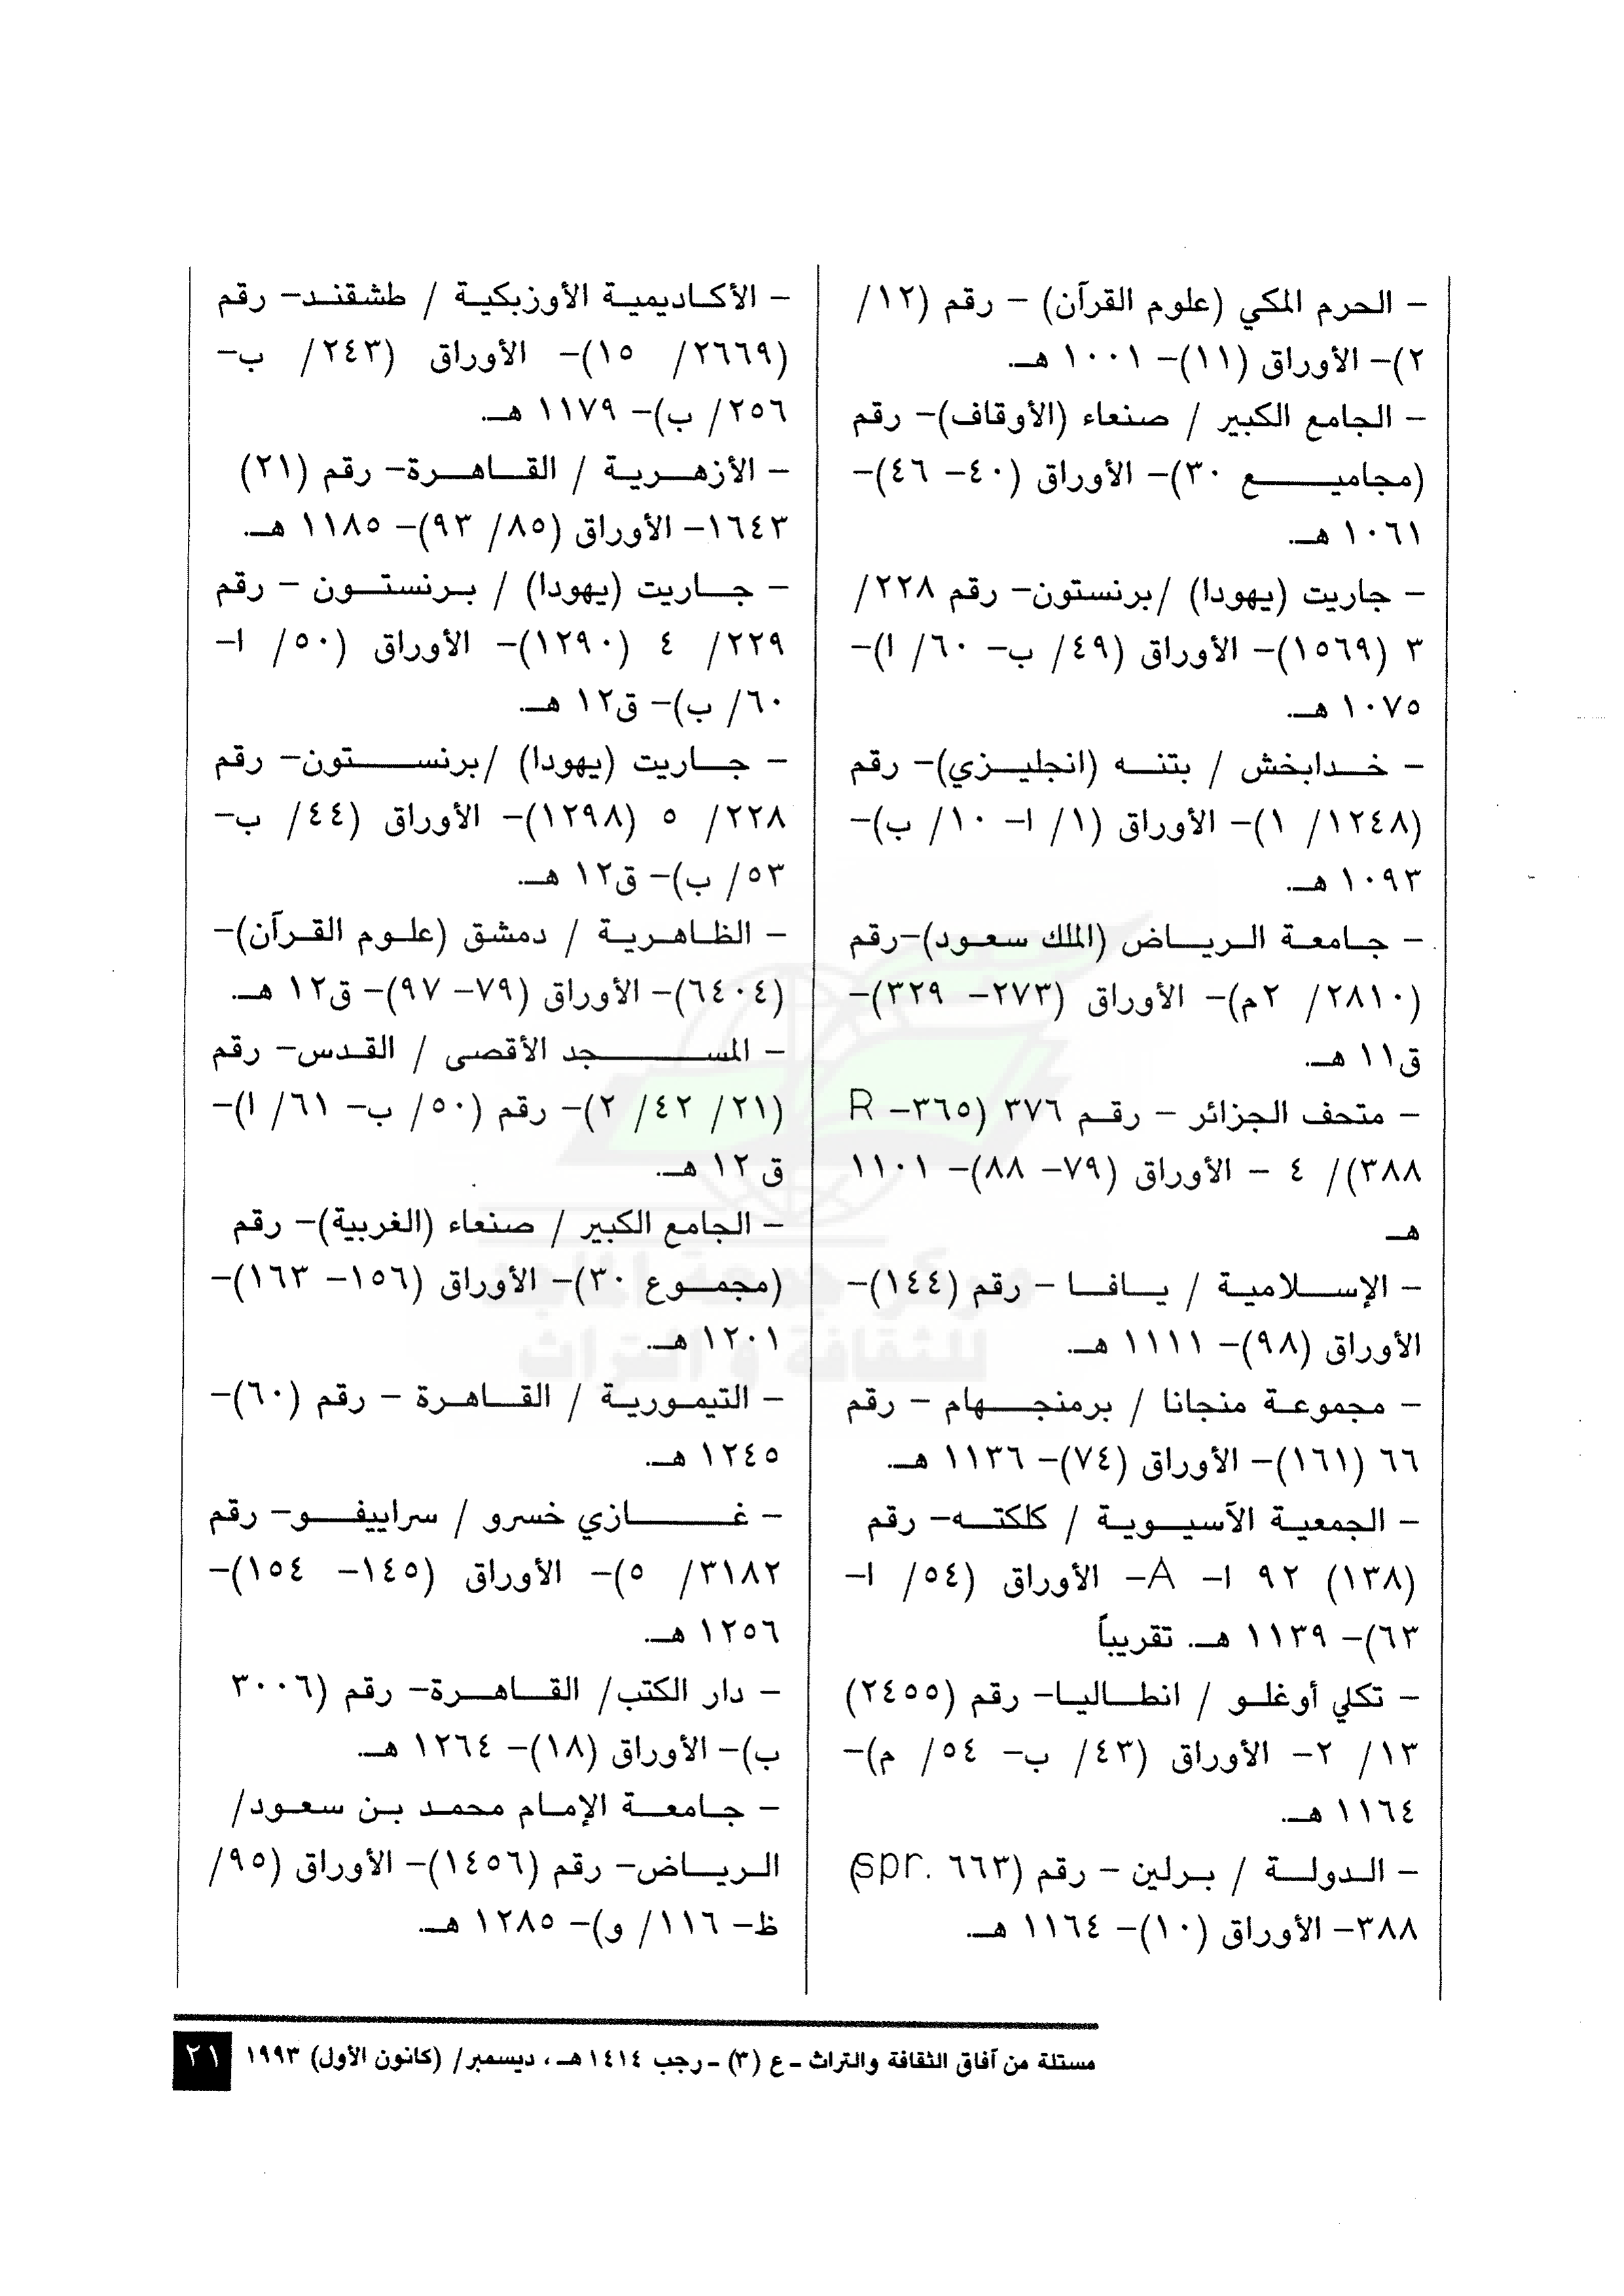 – الحرم المكي (علوم القرآن) – رقم (١٢/
٢)– الأوراق (١١)– ١٠٠١ هـ.
– الجامع الكبير / صنعاء (الأوقاف)– رقم
(مجاميع ٣٠)– الأوراق (٤٠– ٤٦)–
١٠٦١ هـ.
– جاريت (يهودا) /برنستون– رقم ٢٢٨/
٣ (١٥٦٩)– الأوراق (٤٩/ ب– ٦٠/ ا)–
١٠٧٥ هـ.
– خدابخش / بتنه (انجليزي)– رقم
(١٢٤٨/ ١)– الأوراق (١/ ا– ١٠/ ب)–
١٠٩٣ هـ.
– جامعة الرياض (الملك سعود)–رقم
(٢٨١٠/ ٢م)– الأوراق (٢٧٣– ٣٢٩)–
ق١١ هـ.
– متحف الجزائر – رقم ٣٧٦ (٣٦٥– R
٣٨٨)/ ٤ – الأوراق (٧٩– ٨٨)– ١١٠١
هـ
– الإسلامية / يافا – رقم (١٤٤)–
الأوراق (٩٨)– ١١١١ هـ.
– مجموعة منجانا / برمنجهام – رقم
٦٦ (١٦١)– الأوراق (٧٤)– ١١٣٦ هـ.
– الجمعية الآسيوية / كلكته– رقم
(١٣٨) ٩٢ ا– A– الأوراق (٥٤/ ا–
٦٣)– ١١٣٩ هـ. تقريباً
– تكلي أوغلو / انطاليا– رقم (٢٤٥٥)
١٣/ ٢– الأوراق (٤٣/ ب– ٥٤/ م)–
١١٦٤ هـ.
– الدولة / برلين – رقم (٦٦٣ .spr)
٣٨٨– الأوراق (١٠)– ١١٦٤ هـ.
– الأكاديمية الأوزبكية / طشقند– رقم
(٢٦٦٩/ ١٥)– الأوراق (٢٤٣/ ب–
٢٥٦/ ب)– ١١٧٩ هـ.
– الأزهرية / القاهرة– رقم (٢١)
١٦٤٣– الأوراق (٨٥/ ٩٣)– ١١٨٥ هـ.
– جاريت (يهودا) / برنستون – رقم
٢٢٩/ ٤ (١٢٩٠)– الأوراق (٥٠/ ا–
٦٠/ ب)– ق١٢ هـ.
– جاريت (يهودا) /برنستون– رقم
٢٢٨/ ٥ (١٢٩٨)– الأوراق (٤٤/ ب–
٥٣/ ب)– ق١٢ هـ.
– الظاهرية / دمشق (علوم القرآن)–
(٦٤٠٤)– الأوراق (٧٩– ٩٧)– ق١٢ هـ.
– المسجد الأقصى / القدس– رقم
(٢١/ ٤٢/ ٢)– رقم (٥٠/ ب– ٦١/ ا)–
ق ١٢ هـ.
– الجامع الكبير / صنعاء (الغربية)– رقم
(مجموع ٣٠)– الأوراق (١٥٦– ١٦٣)–
١٢٠١ هـ.
– التيمورية / القاهرة – رقم (٦٠)–
١٢٤٥ هـ.
– غازي خسرو / سراييفو– رقم
٣١٨٢/ ٥)– الأوراق (١٤٥– ١٥٤)–
١٢٥٦ هـ.
– دار الكتب/ القاهرة– رقم (٣٠٠٦
ب)– الأوراق (١٨)– ١٢٦٤ هـ.
– جامعة الإمام محمد بن سعود/
الرياض– رقم (١٤٥٦)– الأوراق (٩٥/
ظ– ١١٦/ و)– ١٢٨٥ هـ.
مركز جمعة الماجد
للثقافة و التراث
مستلة من آفاق الثقافة والتراث ـ ع (٣) ـ رجب ١٤١٤ هـ ، ديسمبر/ (كانون الأول) ١٩٩٣
٢١